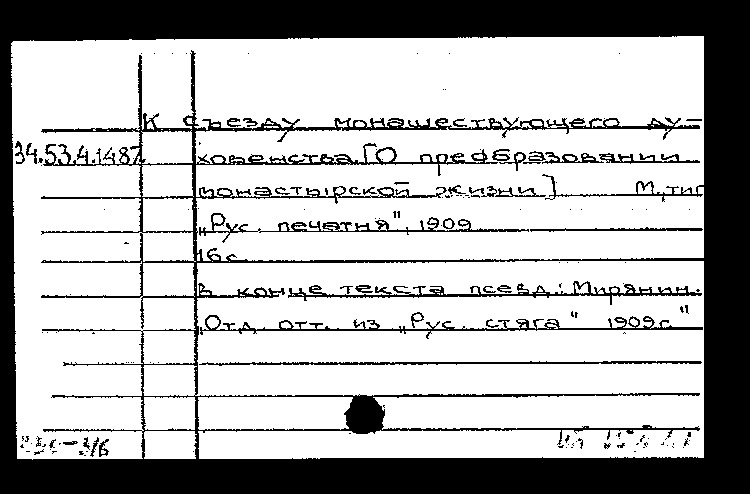 К съезду монашествующего ду-
34.53.4.1487 ховенства. [О преобразовании
монастырской жизни] М, тип
„Рус. печатня", 1909
16 с.
В конце текста псевд.: Мирянин.
„Отд. отт. из „Рус. стяга" 1909г."